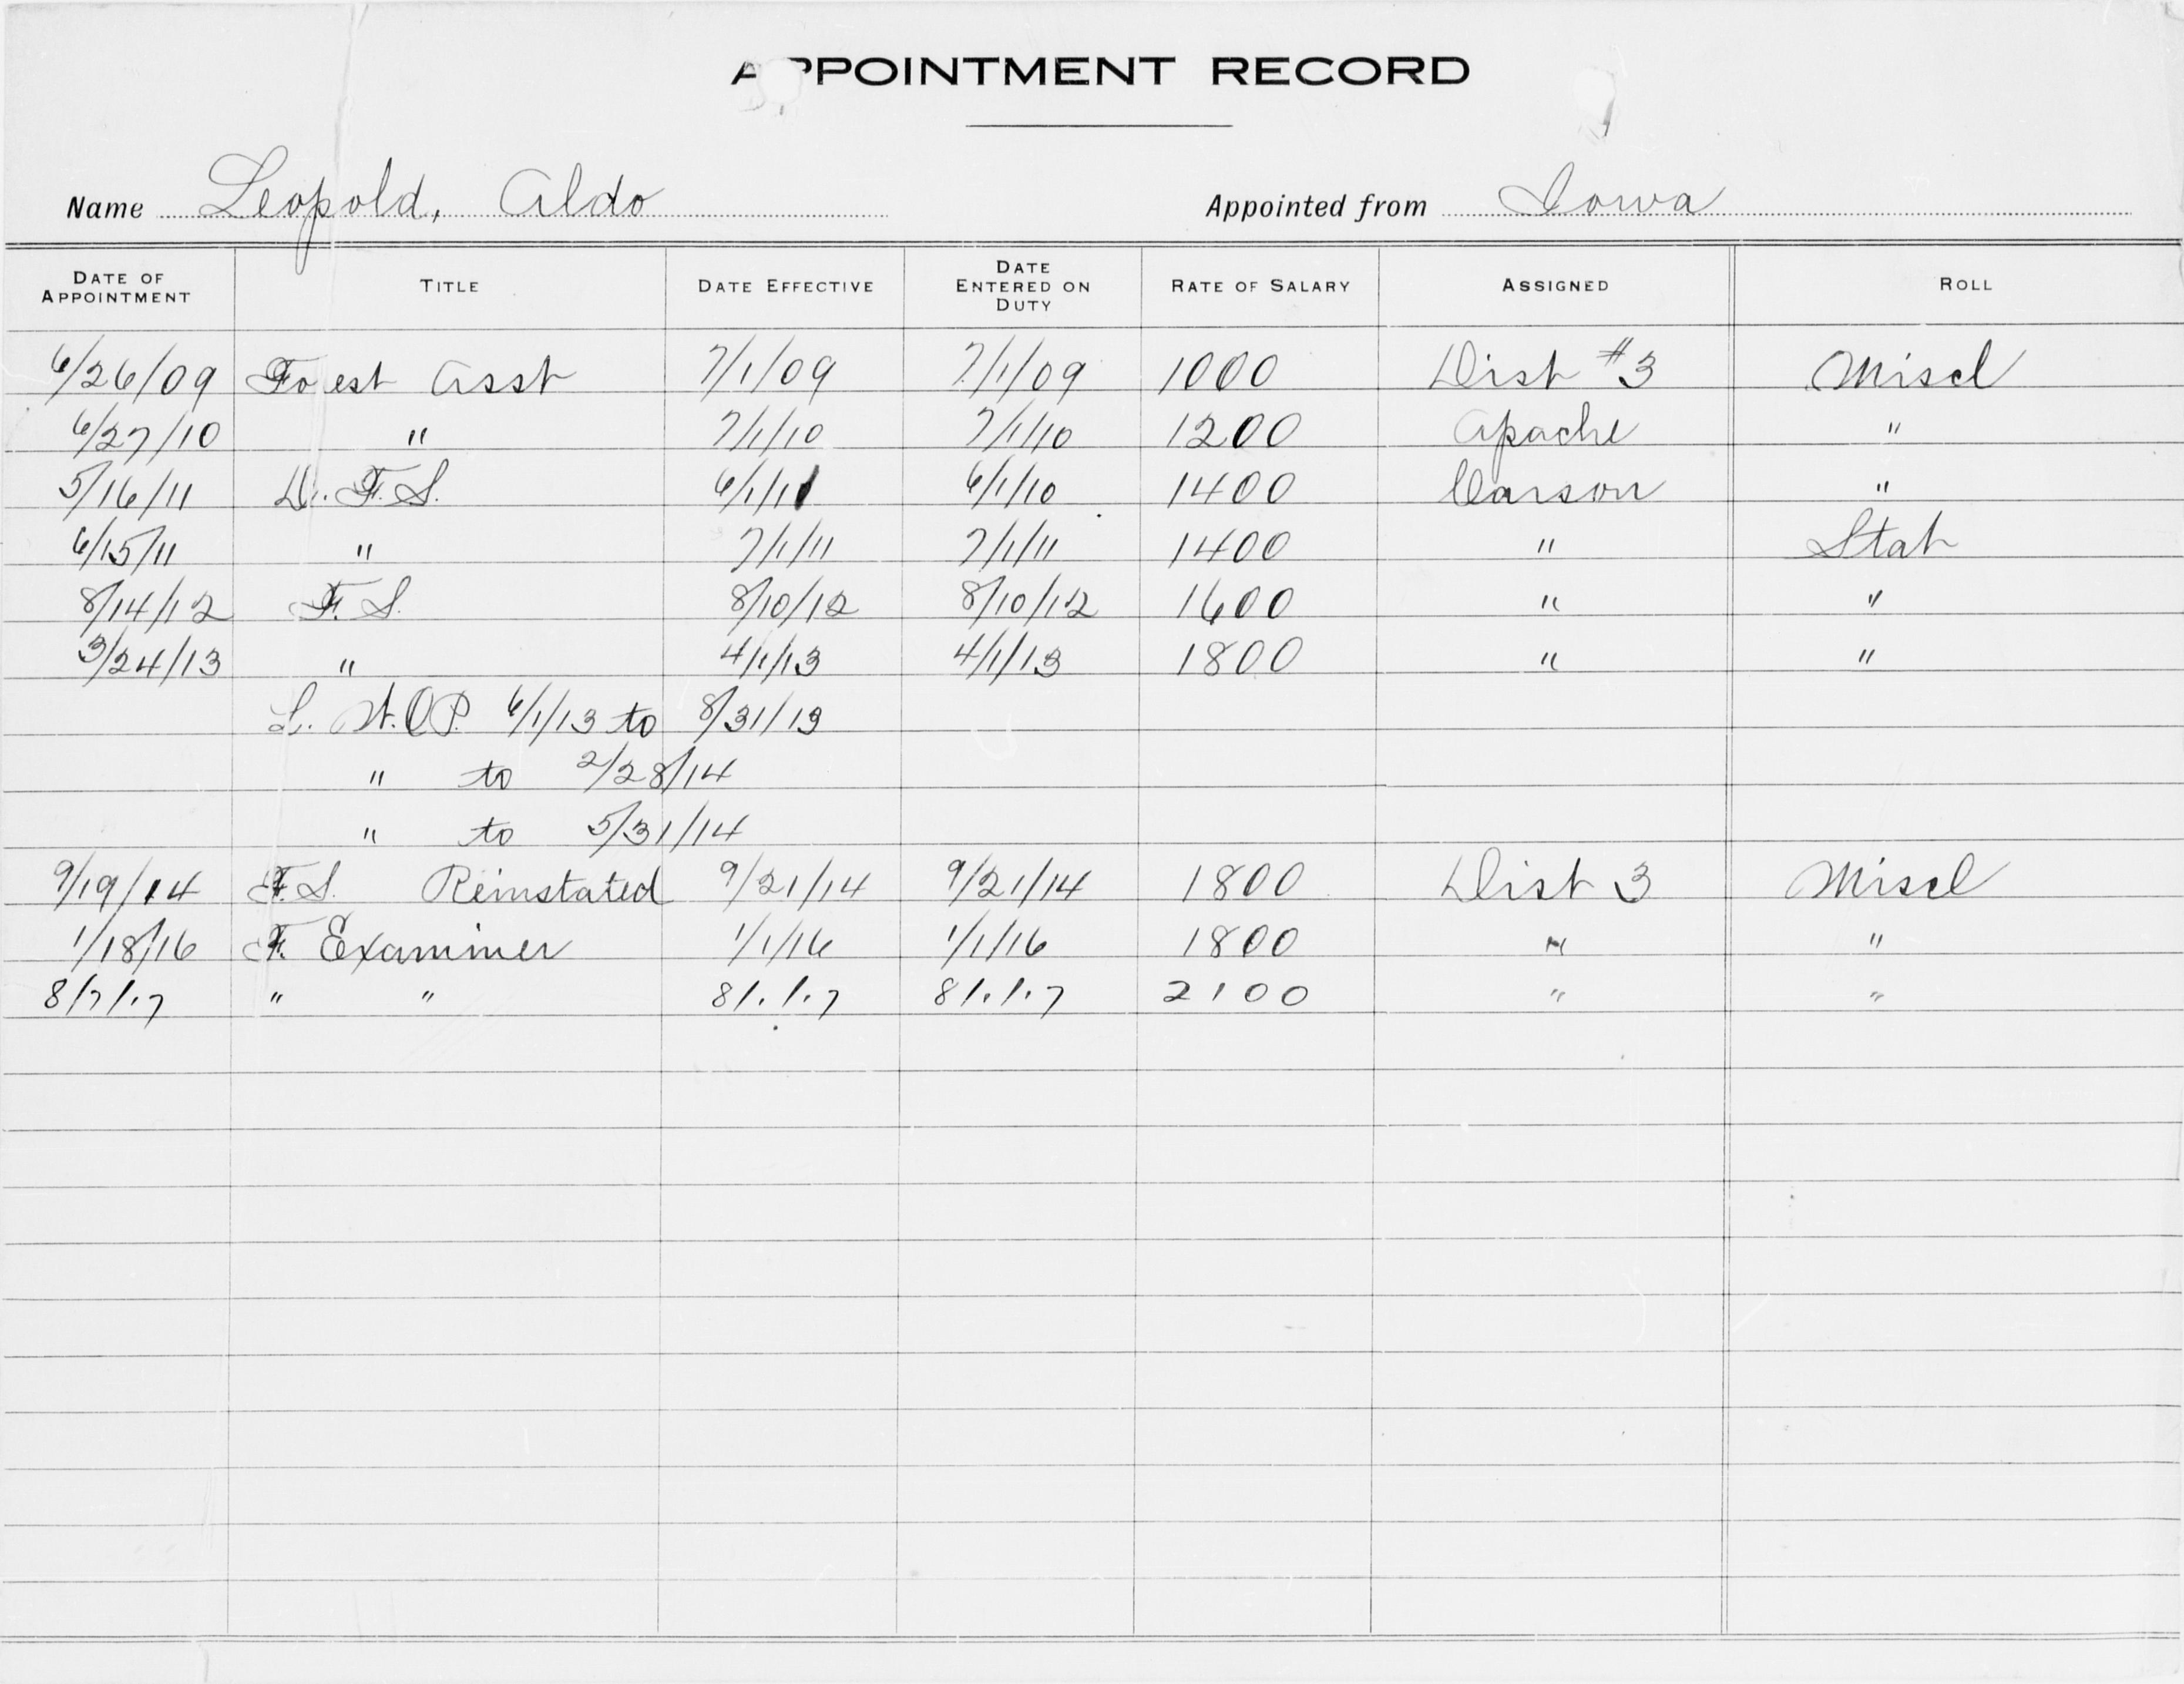 APPOINTMENT RECORD
Name Leopold, Aldo Appointed from Iowa
DATE OF APPOINTMENT TITLE DATE EFFECTIVE DATE ENTERED ON DUTY RATE OF SALARY ASSIGNED ROLL
6/26/09 Fo est Asst 7/1/09 7/1/09 1000 Dist #3 Miscl
6/27/10 " 7/1/10 7/1/10 1200 Apache "
5/16/11 D. F. S. 6/1/11 6/1/10 1400 Carson "
6/15/11 " 7/1/11 7/1/11 1400 " Stat
8/14/12 F. S. 8/10/12 8/10/12 1600 " "
3/24/13 " 4/1/13 4/1/13 1800 " "
L. W.O.P. 6/1/13 to 8/31/13
" to 2/28/14
" to 5/31/14
9/19/14 F.S. Reinstated 9/21/14 9/21/14 1800 Dist 3 Miscl
1/18/16 F. Examiner 1/1/16 1/1/16 1800 " "
8/7/17 " " 8/1/17 8/1/17 2100 " "